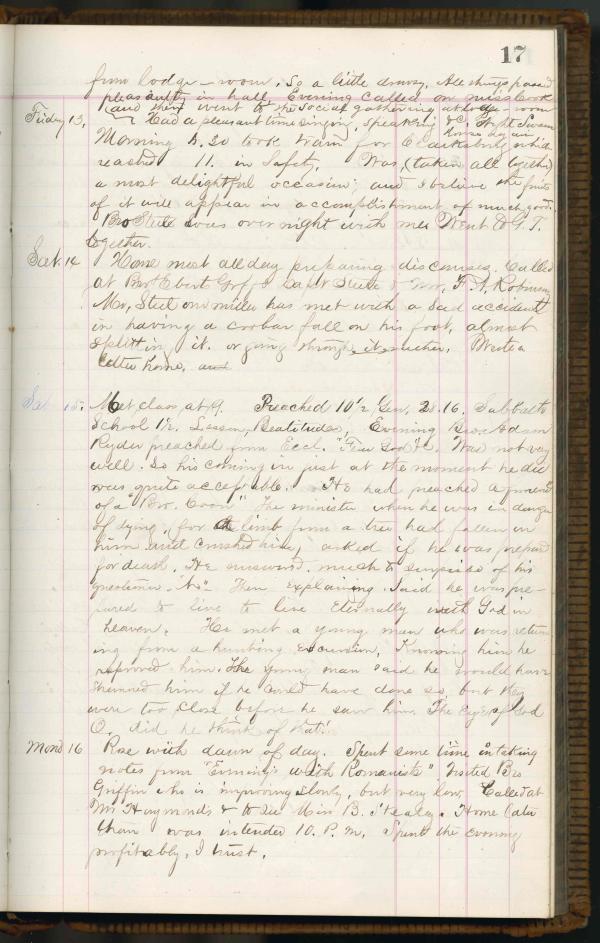 17
from lodge-room. So a little drowsy. All things passed
pleasantly in hall. Evening called on Miss Cook
(and then went to the social gathering at lodge room
Friday 13. Had a pleasant time singing, speaking &c.
home again.
Morning 4.30 took train for Clarksburg which
reached 11. in safety. Was, (taken all together)
a most delightful occasion; and I believe the fruits
of it will appear in accomplishment of much good.
Bro Steele was over night with me. Went to G. T.
together.
Sat. 14 Home most all day preparing discourses. Called
at Bro Ebert Gof, & Steele & F. A. Robinson
Mr, Steel our miller has met with a sad accident
in having a crobar fall on his foot, almost
splitting it. or going through it rather. Wrote a
letter home. and
Sab 15. Met class, at 9. Preached 10 1/2 Gen. 28.16. Sabbath
School 1 1/2. Lesson, Beatitudes, Evening Bro. Adam
Ryder preached from Eccl. "Fear God &c. Was not very
well. So his coming in just at the moment he did
was quite acceptable. He had preached a funeral
of a "Bro. Coon" The minister when he was in danger
of dying, for a limb from a tree had fallen on
him and crushed him, asked if he was prepared
for death. He answered much to surprise of his
questioner "No". Then explaining said he was pre-
pared to live to live Eternally with God in
heaven. He met a young man who was return
ing from a hunting excursion, Knowing him he
reproved him. The young man said he would have
shunned him if he could have done so, but they
were too close before he saw him. The eye of God
O. did he think of that!
Mond 16 Rose with dawn of day. Spent some time in taking
notes from "Evenings with Romanists" Visited Bro
Griffin who is improving slowly, but very low. Called at
Mr Haymonds & to see Miss B. Stealey. Home later
than was intended 10. P. M. Spent the evening
profitably, I trust.